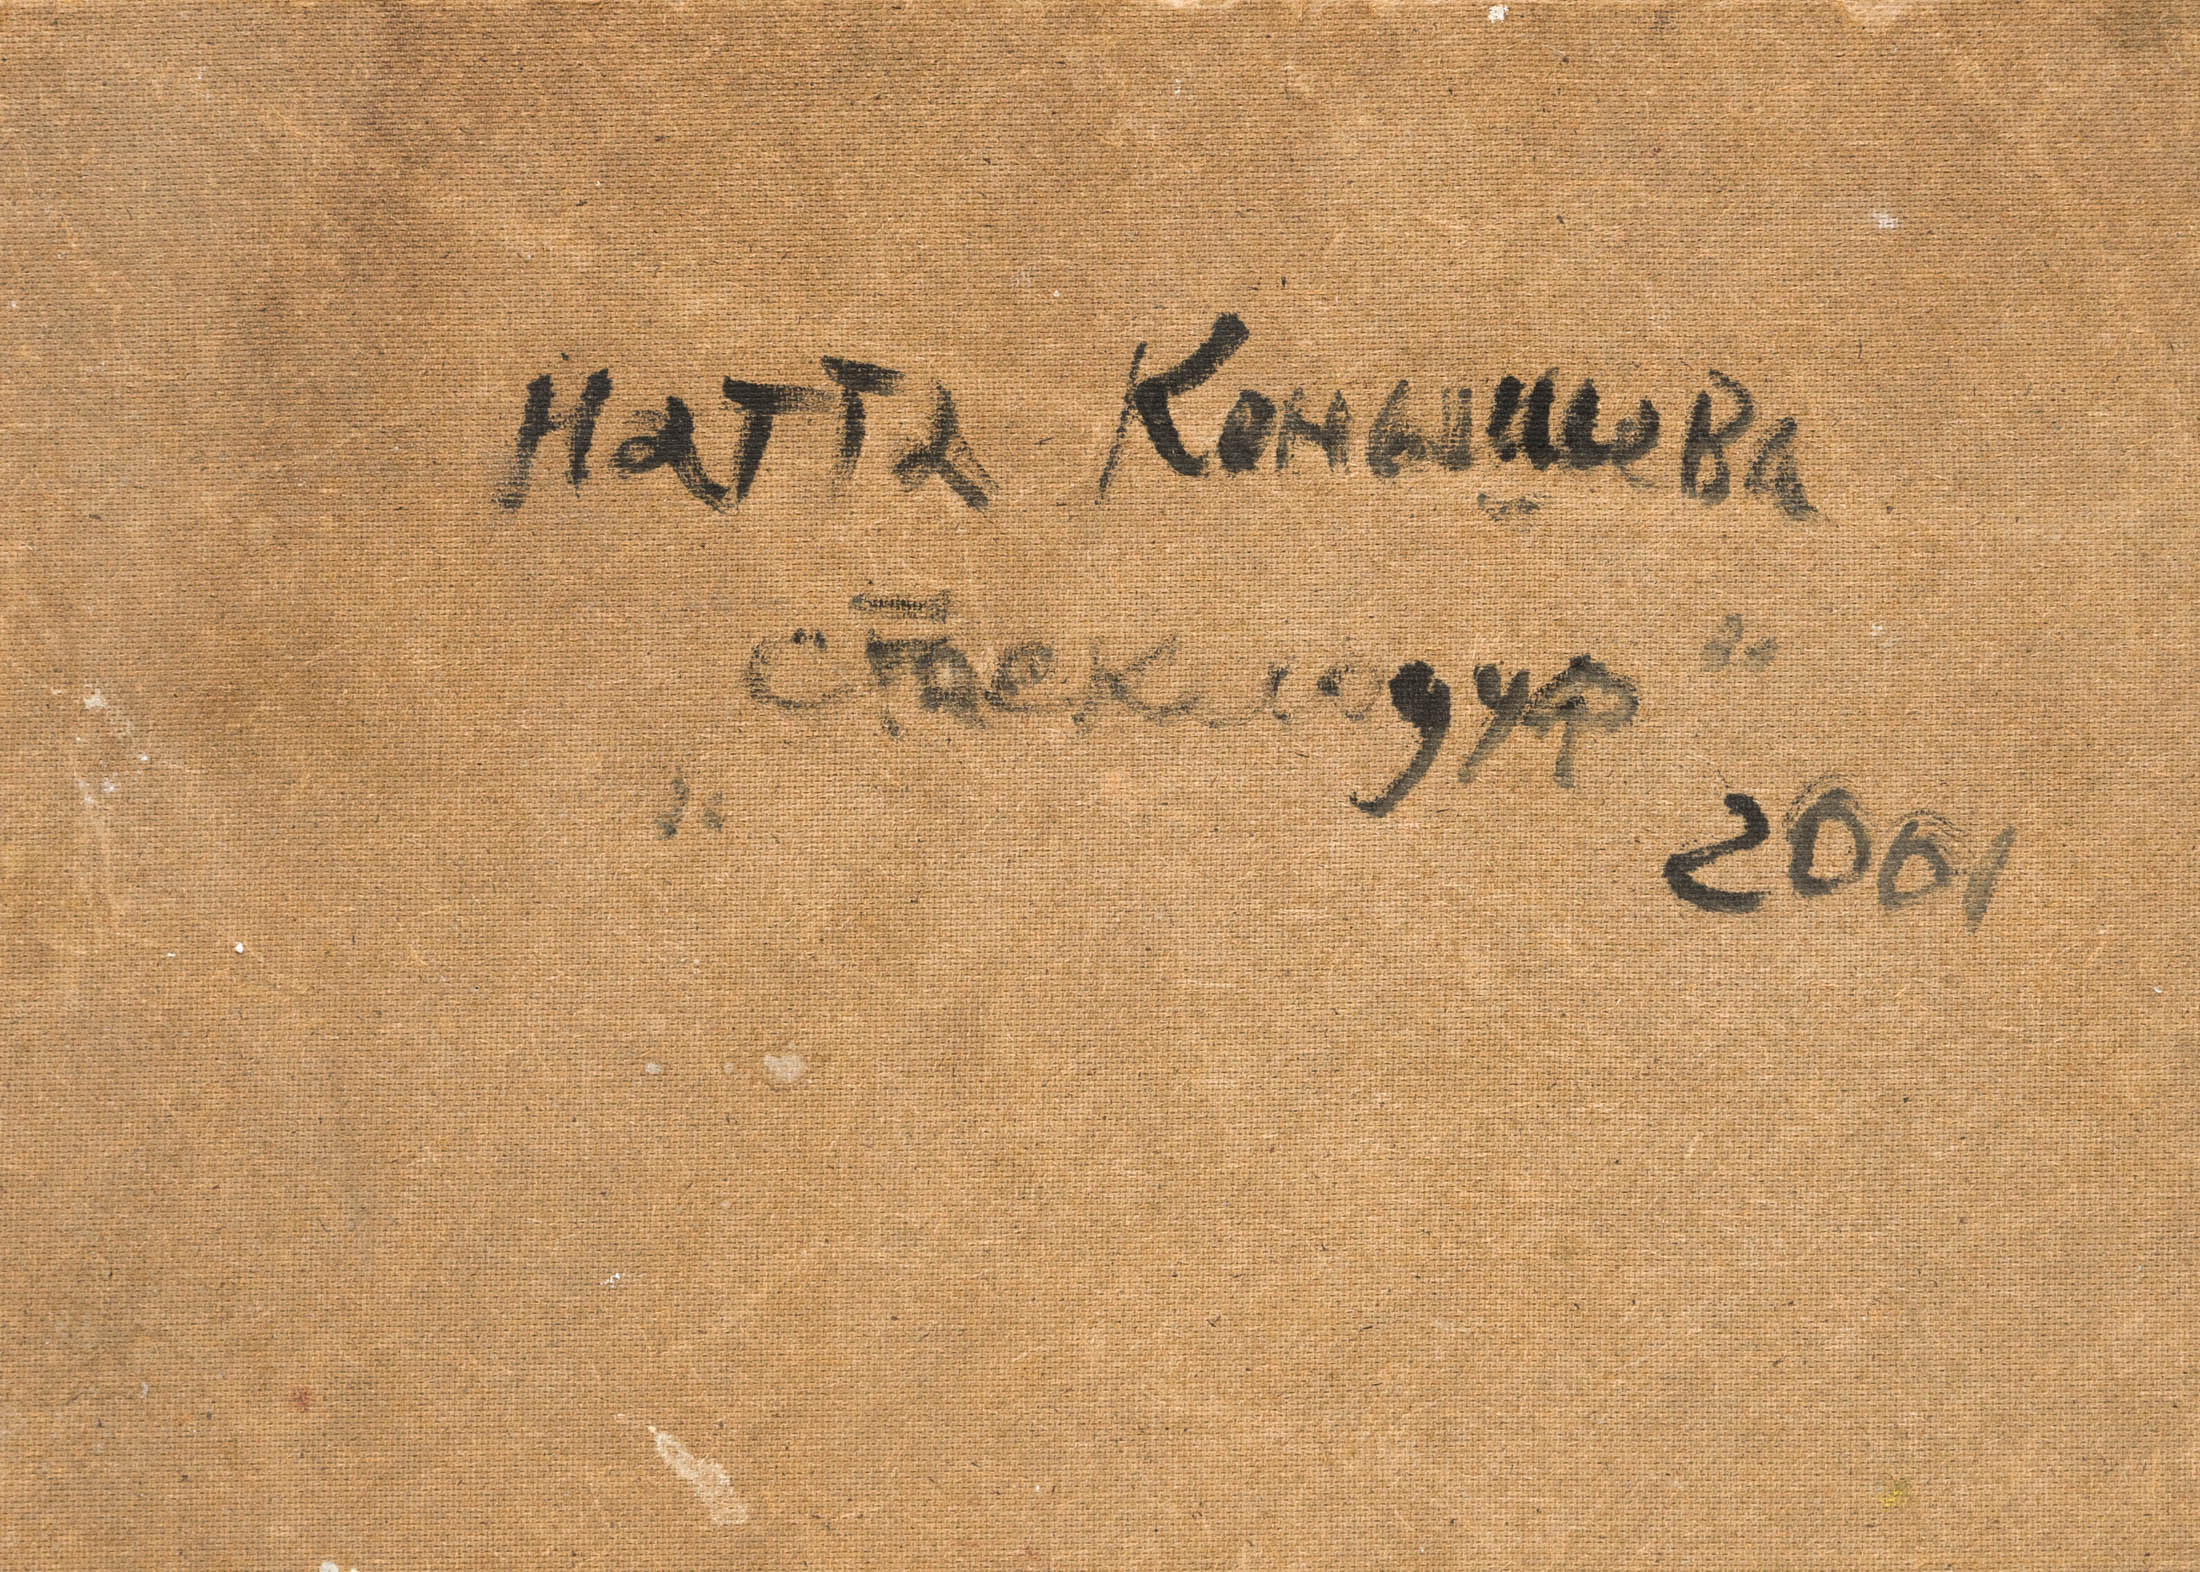 Натта Конышева
"Стеклодув"
2001